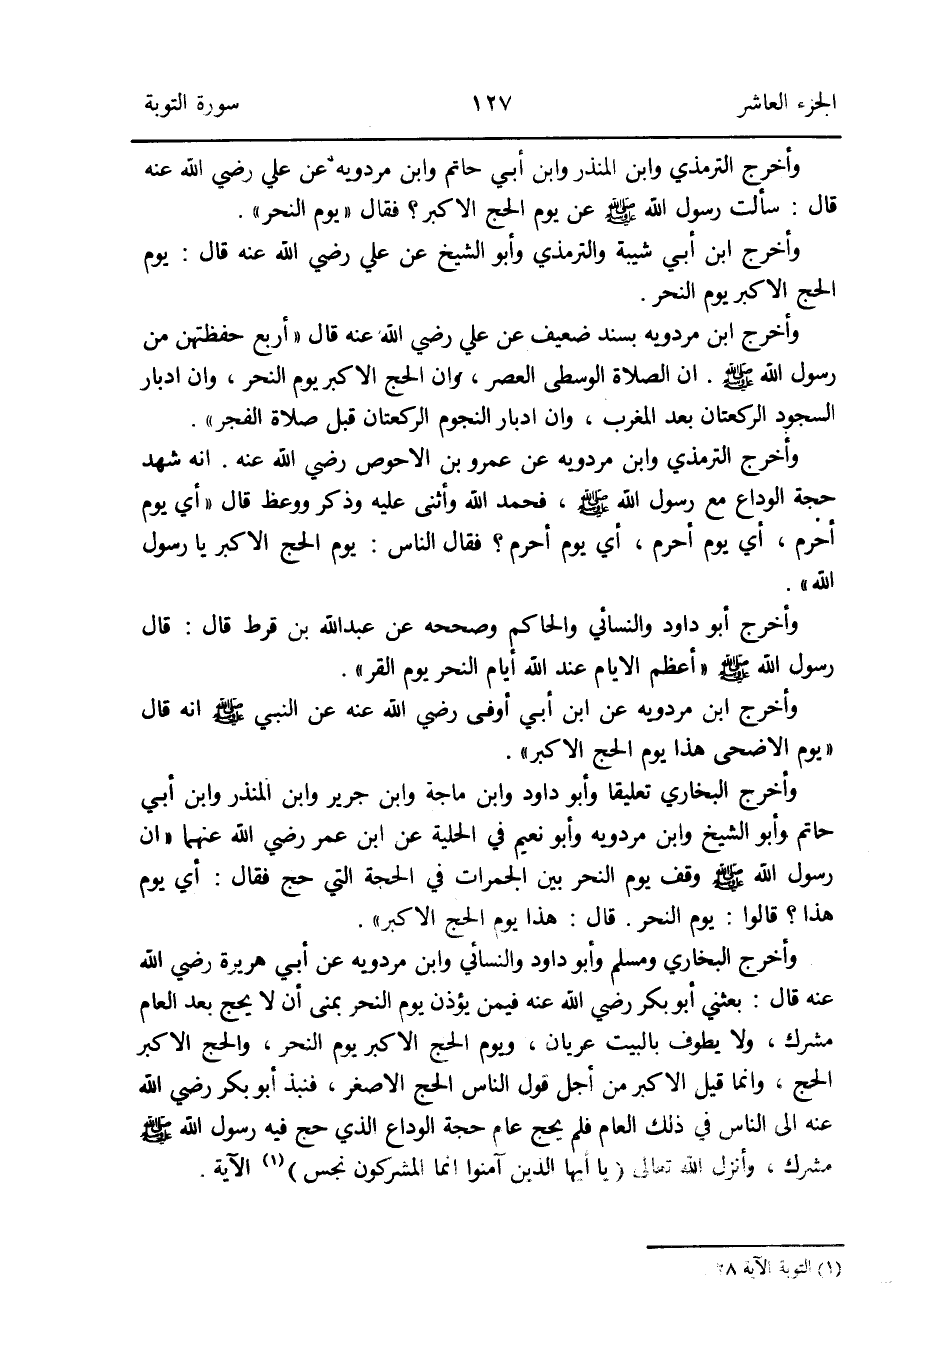 الجزء العاشر ١٢٧ سورة التوبة
وأخرج الترمذي وابن المنذر وابن أبي حاتم وابن مردويه عن علي رضي الله عنه
قال : سألت رسول الله ﷺ عن يوم الحج الاكبر ؟ فقال « يوم النحر» .
وأخرج ابن أبي شيبة والترمذي وأبو الشيخ عن علي رضي الله عنه قال : يوم
الحج الاكبر يوم النحر .
وأخرج ابن مردويه بسند ضعيف عن علي رضي الله عنه قال « أربع حفظتهن من
رسول الله ﷺ . ان الصلاة الوسطى العصر ، وان الحج الاكبر يوم النحر ، وان ادبار
السجود الركعتان بعد المغرب ، وان ادبار النجوم الركعتان قبل صلاة الفجر» .
وأخرج الترمذي وابن مردويه عن عمرو بن الاحوص رضي الله عنه . انه شهد
حجة الوداع مع رسول الله ﷺ ، فحمد الله وأثنى عليه وذكر ووعظ قال « أي يوم
أحرم ، أي يوم أحرم ، أي يوم أحرم ؟ فقال الناس : يوم الحج الاكبر يا رسول
الله » .
وأخرج أبو داود والنسائي والحاكم وصححه عن عبدالله بن قرط قال : قال
رسول الله ﷺ « أعظم الايام عند الله أيام النحر يوم القر» .
وأخرج ابن مردويه عن ابن أبي أوفى رضي الله عنه عن النبي ﷺ انه قال
« يوم الاضحى هذا يوم الحج الاكبر» .
وأخرج البخاري تعليقا وأبو داود وابن ماجة وابن جرير وابن المنذر وابن أبي
حاتم وأبو الشيخ وابن مردويه وأبو نعيم في الحلية عن ابن عمر رضي الله عنهما « ان
رسول الله ﷺ وقف يوم النحر بين الجمرات في الحجة التي حج فقال : أي يوم
هذا ؟ قالوا : يوم النحر . قال : هذا يوم الحج الاكبر» .
وأخرج البخاري ومسلم وأبو داود والنسائي وابن مردويه عن أبي هريرة رضي الله
عنه قال : بعثني أبو بكر رضي الله عنه فيمن يؤذن يوم النحر بمنى أن لا يحج بعد العام
مشرك ، ولا يطوف بالبيت عريان ، ويوم الحج الاكبر يوم النحر ، والحج الاكبر
الحج ، وانما قيل الاكبر من أجل قول الناس الحج الاصغر ، فنبذ أبو بكر رضي الله
عنه الى الناس في ذلك العام فلم يحج عام حجة الوداع الذي حج فيه رسول الله ﷺ
مشرك ، وأنزل الله تعالى ( يا أيها الذين آمنوا انما المشركون نجس ) (١) الآية .
(١) التوبة الآية ٢٨ .